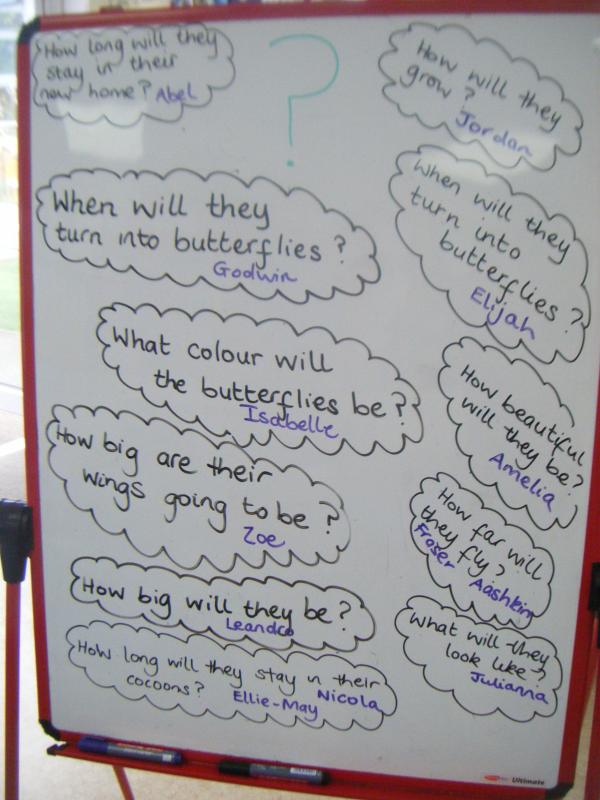 How long will they
stay in their
new home? Abel
?
How will they
grow?
Jordan
When will they
turn into butterflies?
Godwin
When will they
turn into
butterflies?
Elijah
What colour will
the butterflies be?
Isabelle
How beautiful
will they be?
Amelia
How big are their
wings going to be?
Zoe
How far will
they fly?
Fraser Aashkin
How big will they be?
Leandro
What will they
look like?
Julianna
How long will they stay in their
cocoons? Nicola
Ellie-May
Ultimate